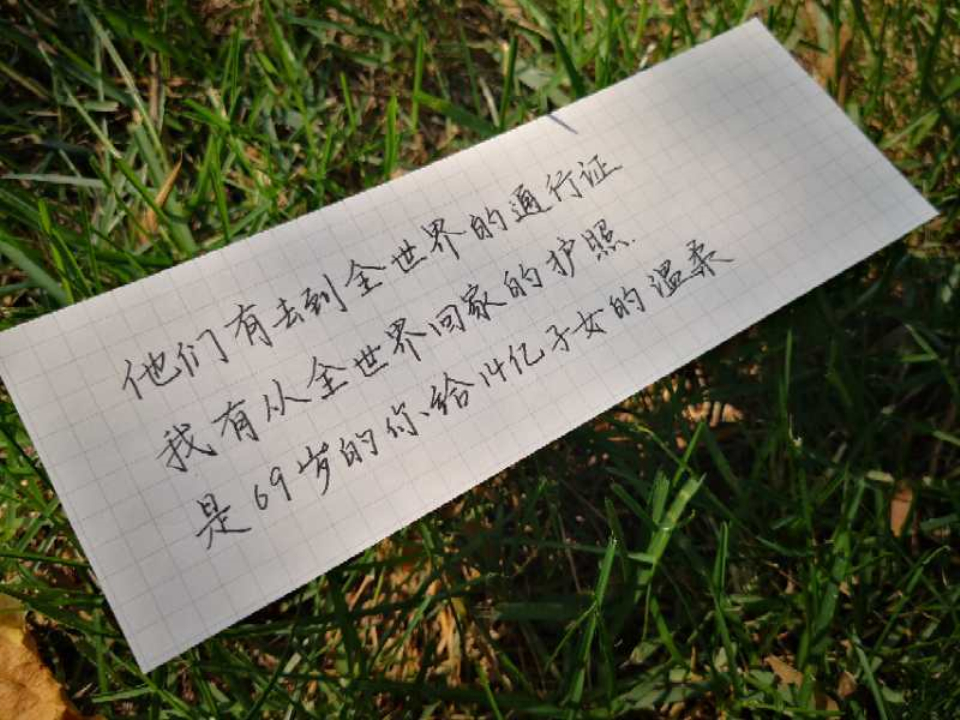 他们有去到全世界的通行证
我有从全世界回家的护照
是69岁的你给14亿子女的温柔